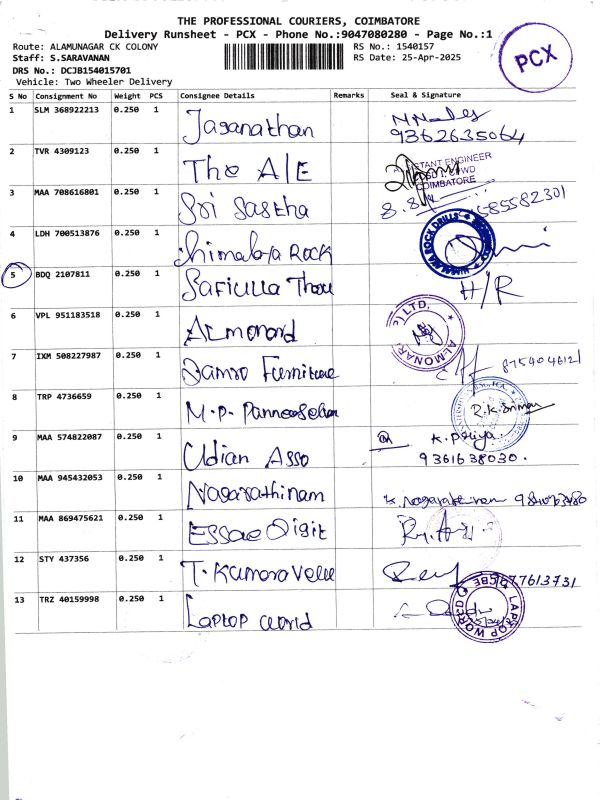 THE PROFESSIONAL COURIERS, COIMBATORE
Delivery Runsheet - PCX - Phone No.:9047080280 - Page No.:1
Route: ALAMUNAGAR CK COLONY RS No.: 1540157
Staff: S.SARAVANAN RS Date: 25-Apr-2025
DRS No.: DCJB154015701
Vehicle: Two Wheeler Delivery
PCX
S No Consignment No Weight PCS Consignee Details Remarks Seal & Signature
1 SLM 368922213 0.250 1 Jaganathan
9362635064
2 TVR 4309123 0.250 1 The A/E
ENGINEER
COIMBATORE
3 MAA 708616801 0.250 1 Sri Sastha
4 LDH 700513876 0.250 1 Himalaya Rock
HIMALAYA ROCK DRILLS
5 BDQ 2107811 0.250 1 Safiulla
H/R
6 VPL 951183518 0.250 1 Almonard
7 IXM 508227987 0.250 1 Damro Furniture
8 TRP 4736659 0.250 1 M.P. Panneerselvam
R.K.Sriman
9 MAA 574822087 0.250 1 Udian Asso
K. Priya
9361638030.
10 MAA 945432053 0.250 1 Nagarathinam
11 MAA 869475621 0.250 1 Essae Digit
12 STY 437356 0.250 1 T. Kumaravelu
13 TRZ 40159998 0.250 1 Laptop World
LAPTOP WORLD